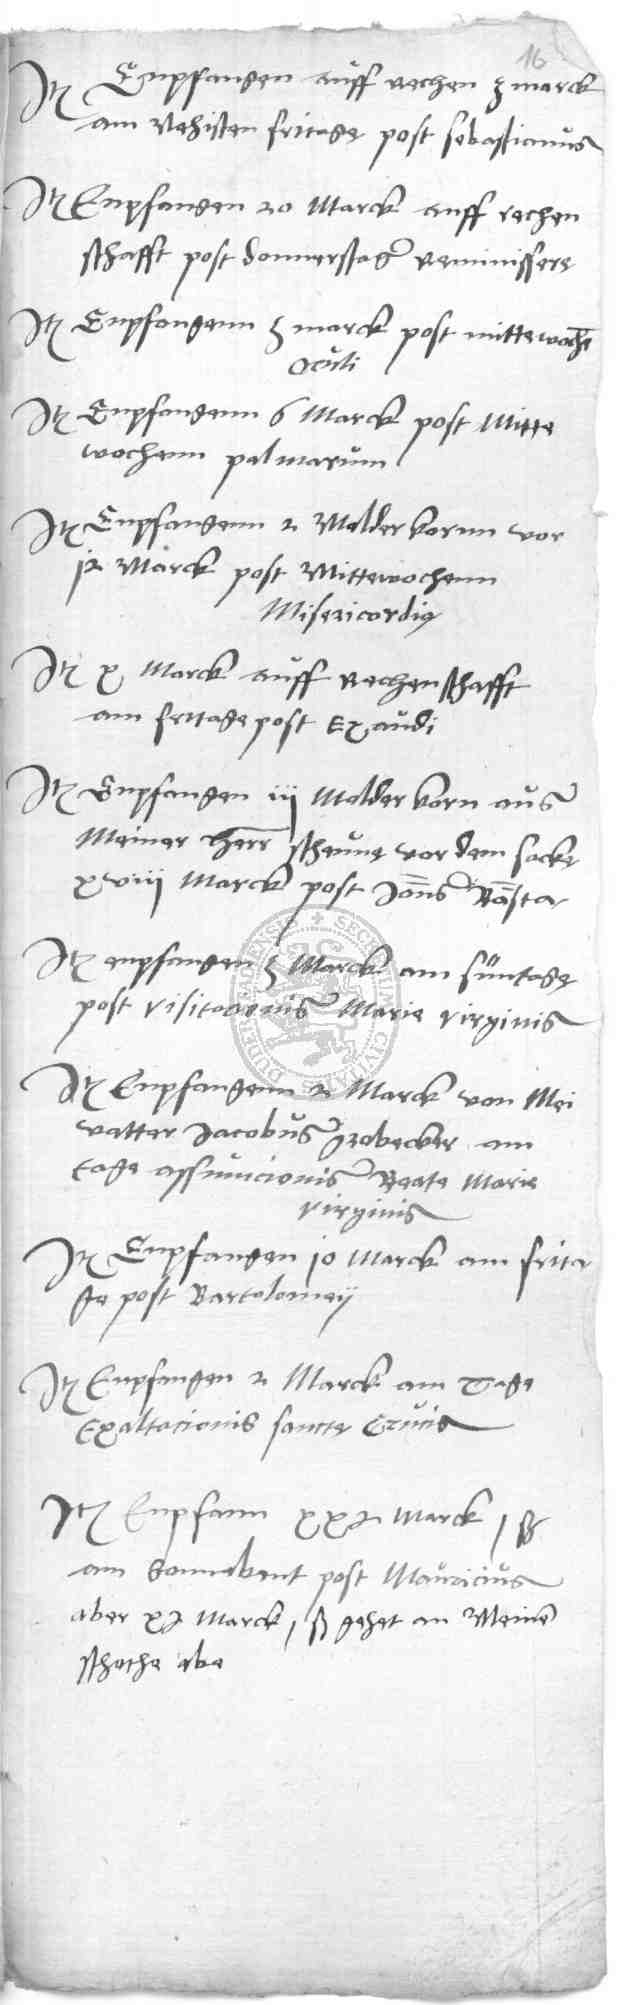 16
Jt Enpfangen auff rechen 3 marck
am nehisten fritage post sebastianus
Jt Enpfangen 20 Marck auff rechen
schafft post donnerstag reminissere
Jt Enpfangenn 3 marck post mittewoche
oculi
Jt Enpfangenn 6 Marck post Mitte
wochenn palmarum
Jt Enpfangenn 2 Malder kornn vor
12 Marck post Mittewochenn
Misericordia
Jt x Marck auff rechenschafft
am fritage post Exaudi
Jt Enpfangen iij Malder korn aus
Meiner herr scheune vor dem sacke
xviij Marck post
Jt enpfangen 3 Marck am suntage
post visitacionis Marie virginis
Jt Enpfangenn 2 Marck von Mei
vatter Jacobus am
tage assumcionis Beate Marie
virginis
Jt Enpfangen 10 Marck am frita
ge post Bartolomeij
Jt Enpfangen 2 Marck am Tage
Exaltacionis sancte Crucis
Jt Enpfann Marck
am Sonnabent post Mauricius
aber Marck gehet an Meine
schothe abe
SECRETUM CIVITATIS DUDERSTADIENSIS